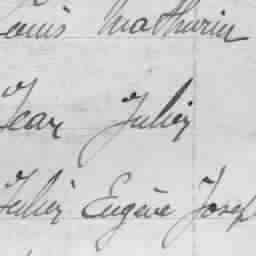 Louis Mathurin
Jean Julien
Julien Eugène Joseph